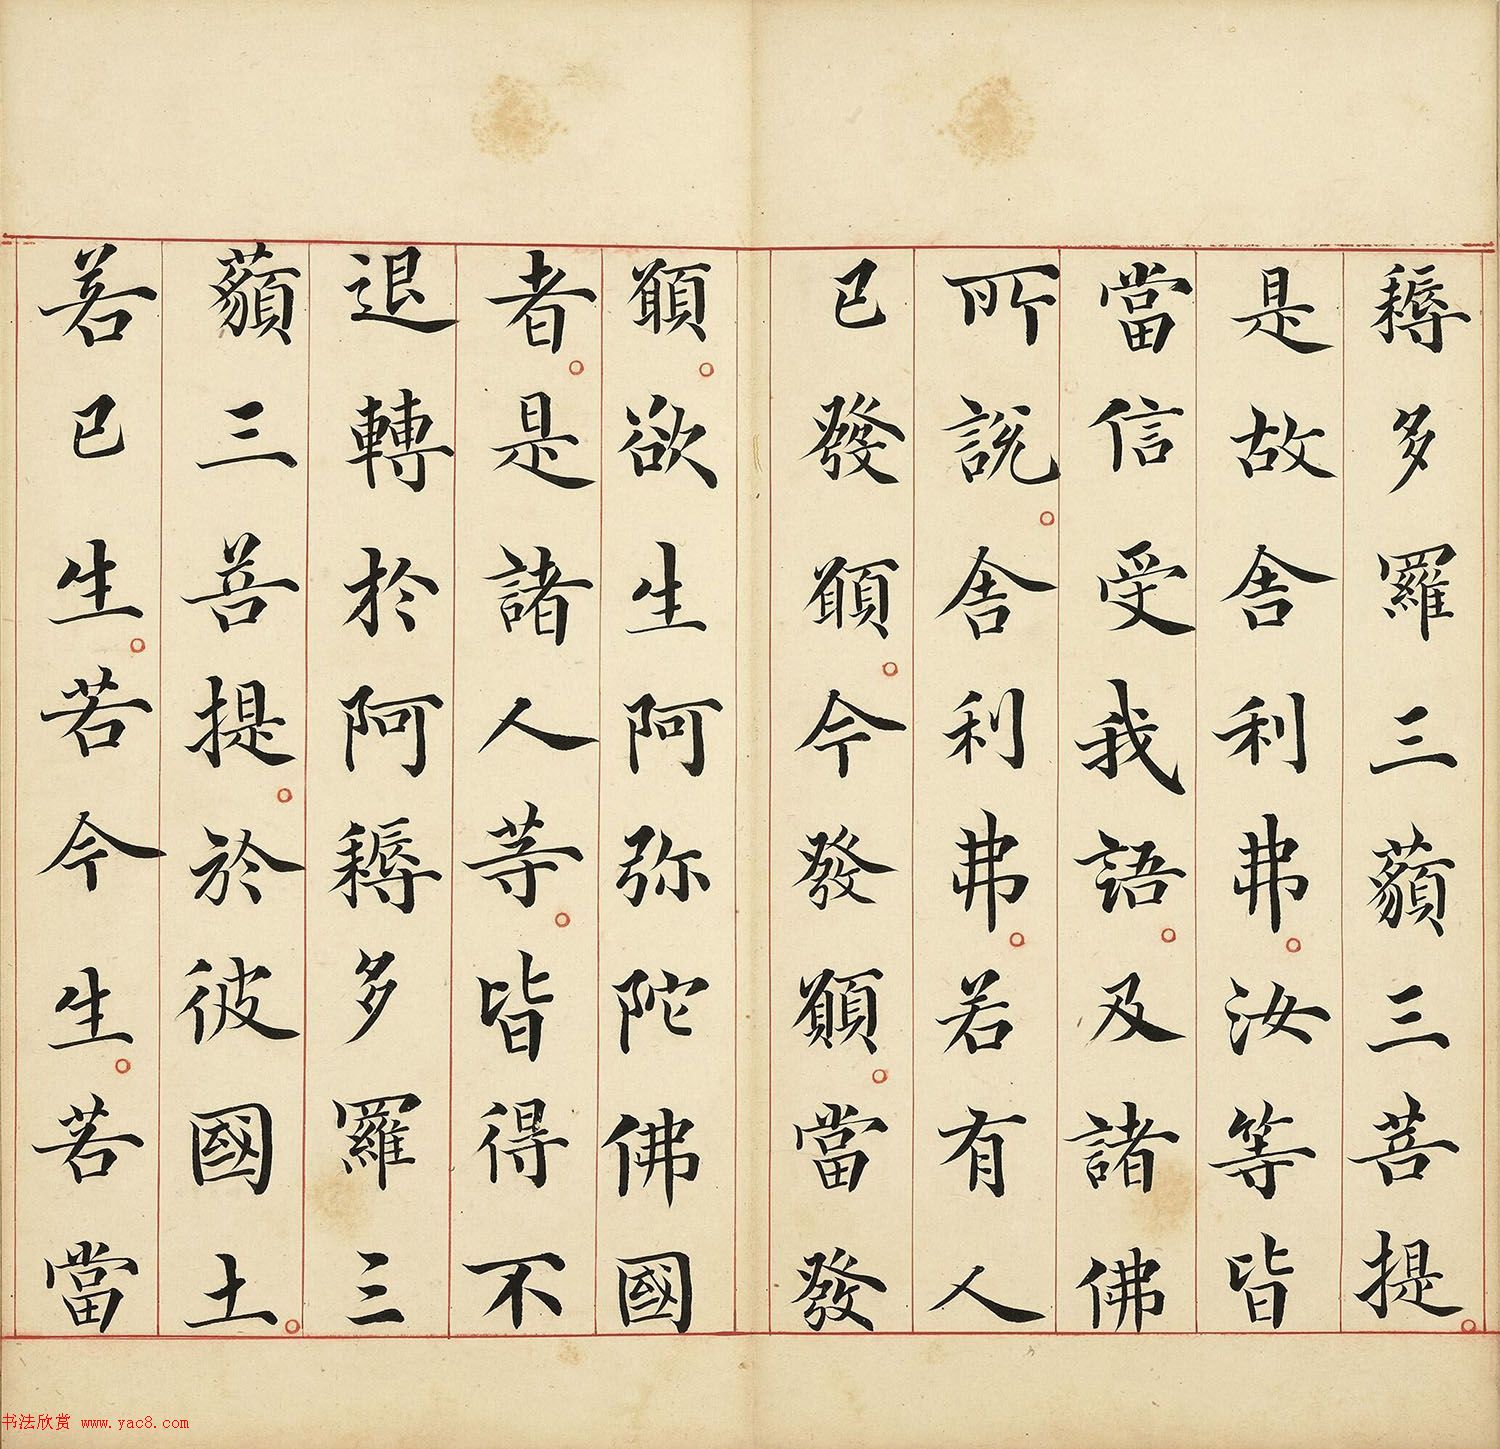 耨多羅三藐三菩提。
是故舍利弗。汝等皆
當信受我語。及諸佛
所說。舍利弗。若有人
已發願。今發願。當發
願。欲生阿弥陀佛國
者。是諸人等。皆得不
退轉於阿耨多羅三
藐三菩提。於彼國土。
若已生。若今生。若當
书法欣赏 www.yac8.com